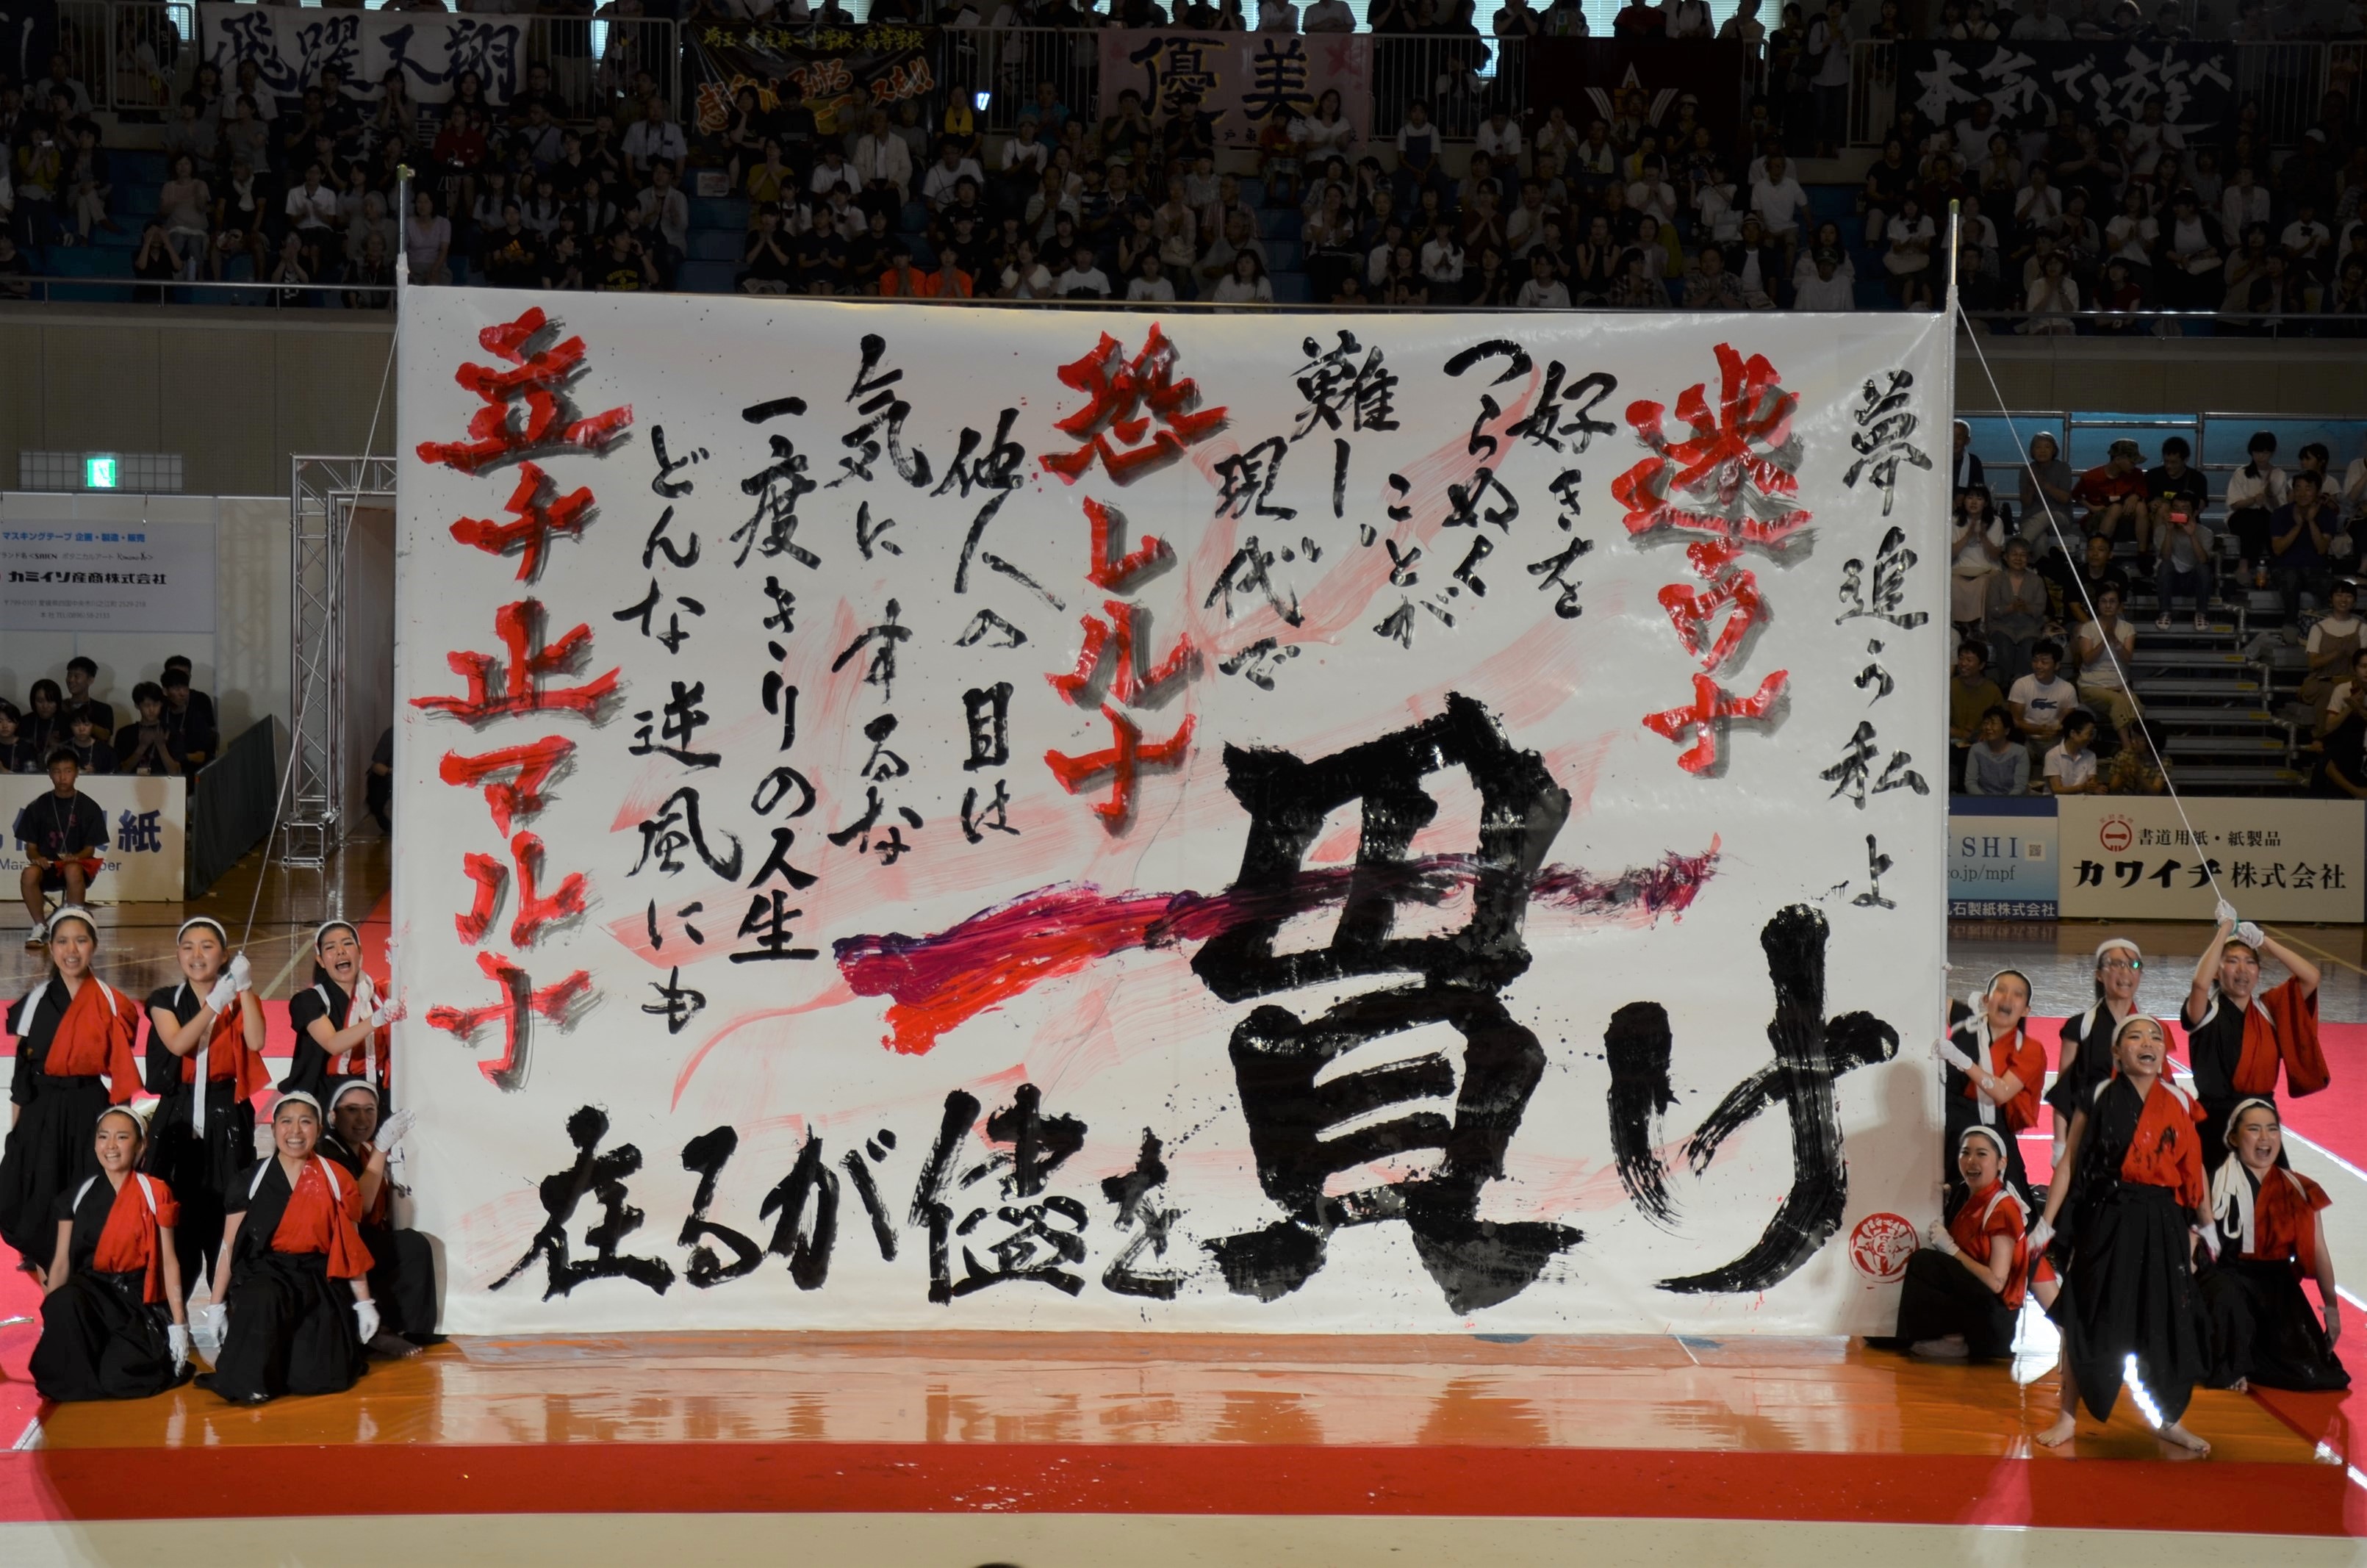 夢追う私よ
迷ウナ
好きを
つらぬく
ことが
難しい
現代で
恐レルナ
他人の目は
気にするな
一度きりの人生
どんな逆風にも
立チ止マルナ
在るが儘を
貫け
飛躍天翔
優美
本気で遊べ
マスキングテープ 企画・製造・販売
カミイソ産商株式会社
製紙
SHI
co.jp/mpf
丸石製紙株式会社
書道用紙・紙製品
カワイチ株式会社